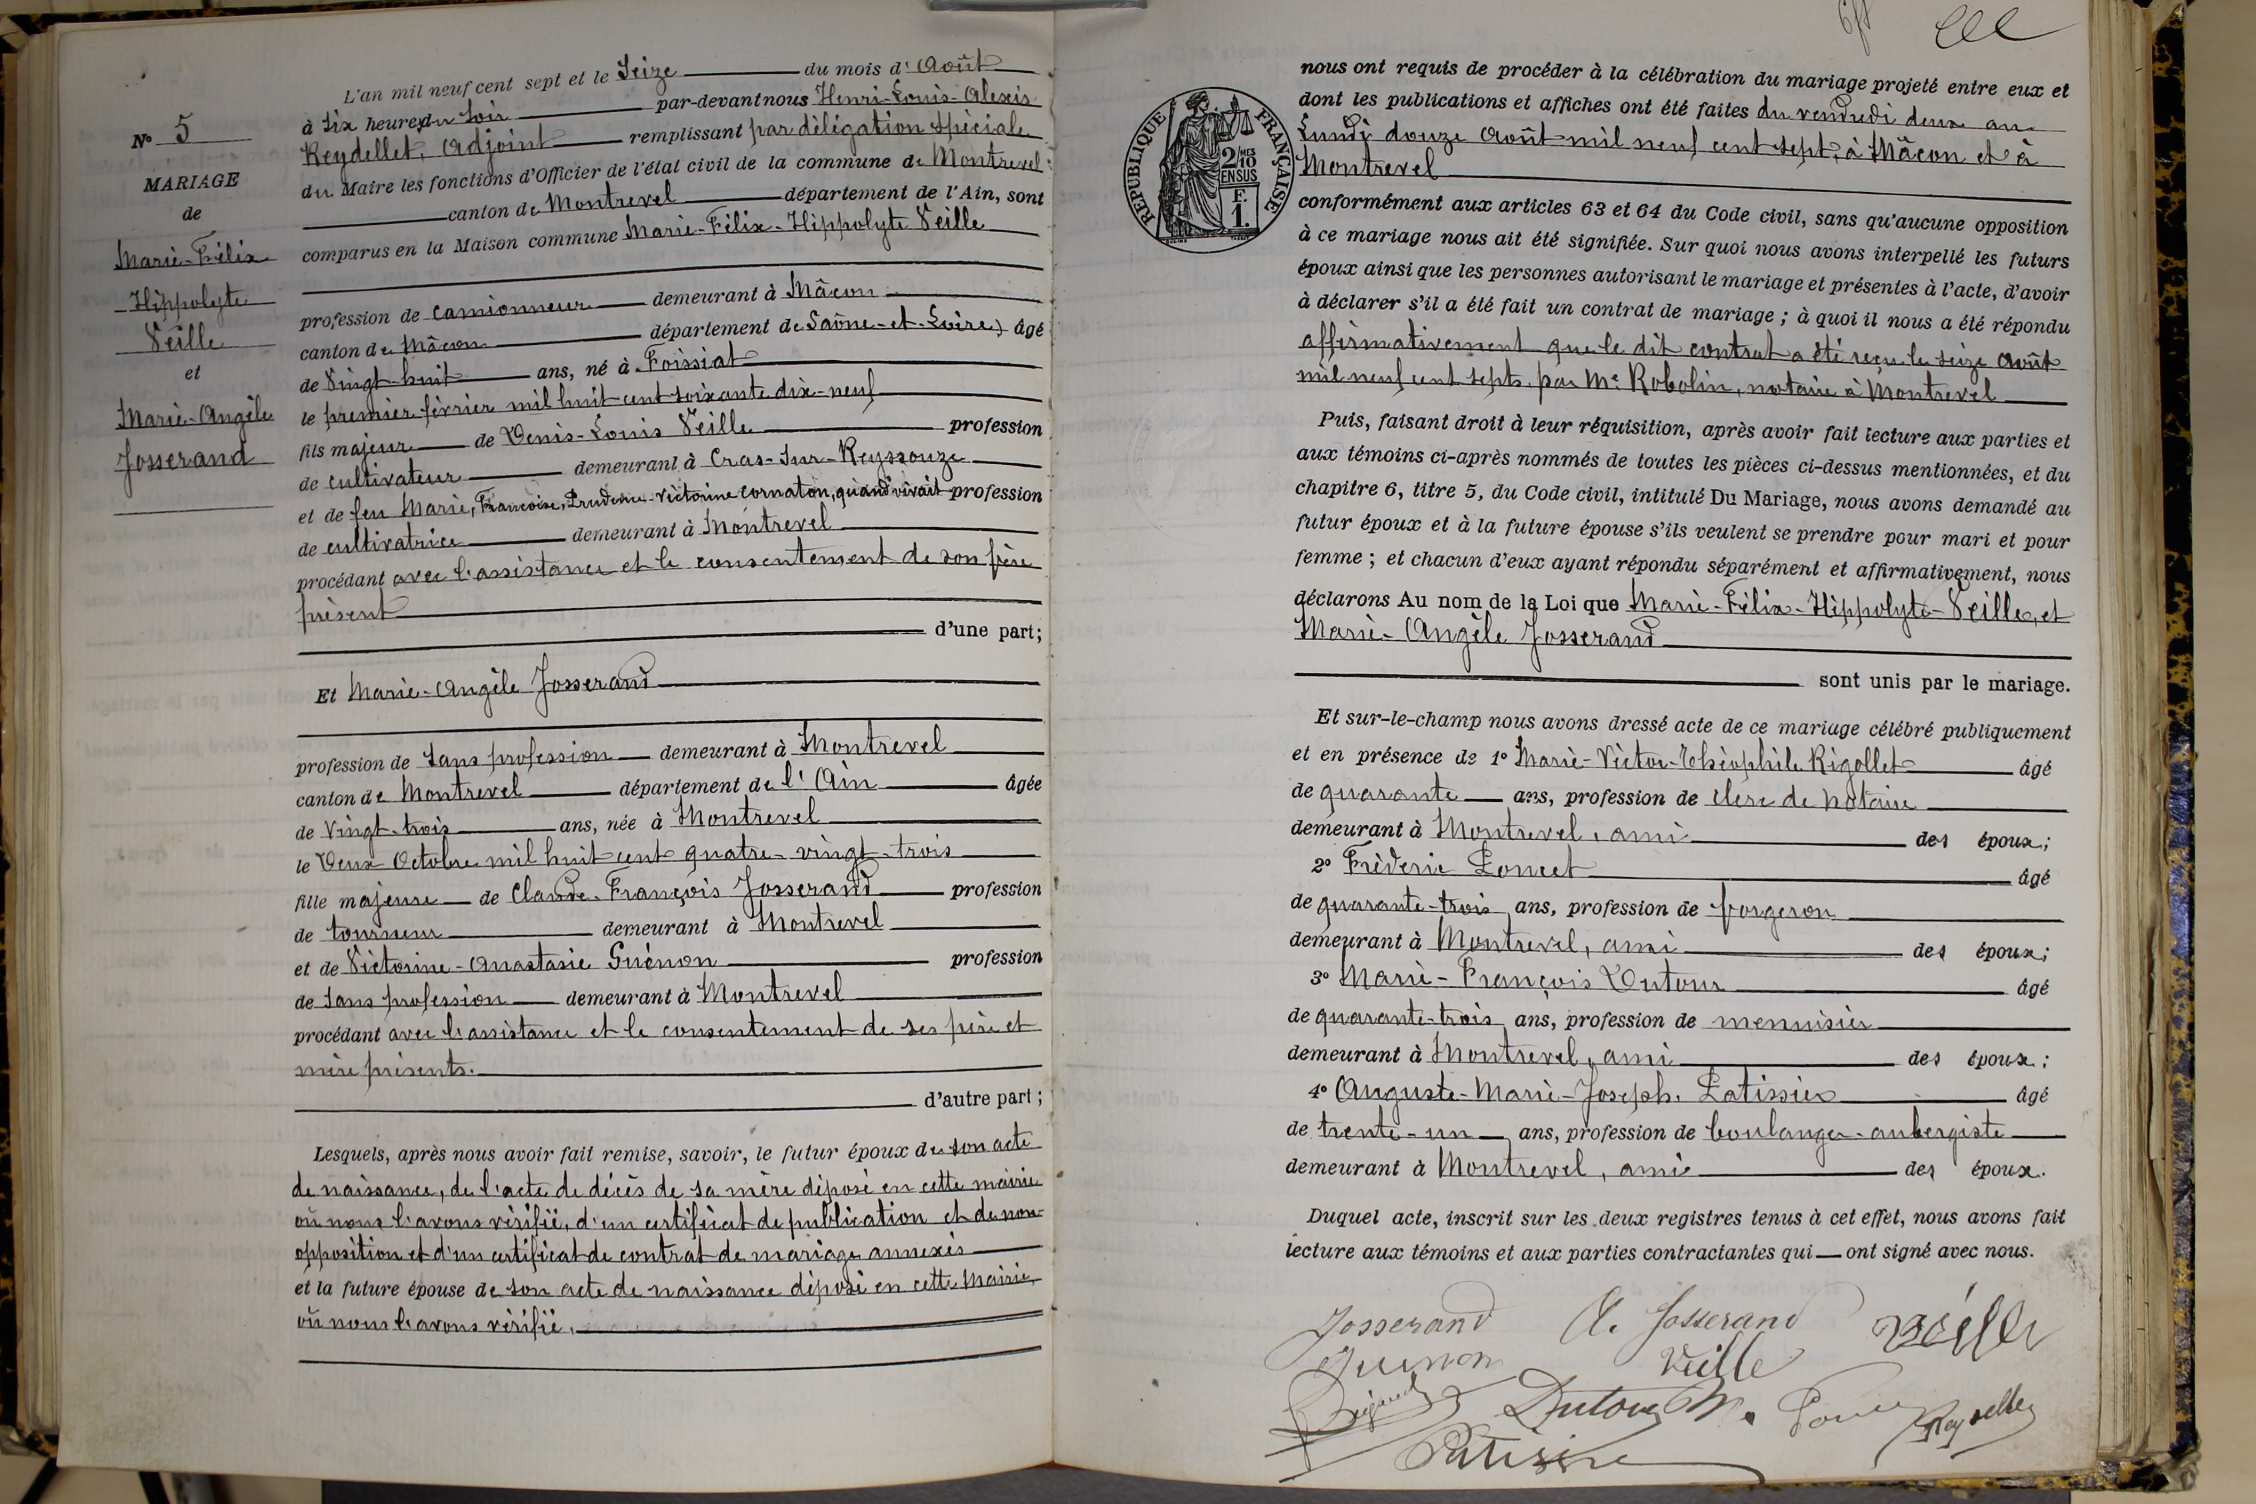 N° 5
MARIAGE
de
Marie-Félix
Hippolyte
Veille
et
Marie-Angèle
Josserand
L'an mil neuf cent sept et le Seize du mois d'Août
à Six heures du Soir par-devant nous Henri-Louis-Alexis
Reydellet, Adjoint remplissant par délégation spéciale
du Maire les fonctions d'Officier de l'état civil de la commune de Montrevel
canton de Montrevel département de l'Ain, sont
comparus en la Maison commune Marie-Félix-Hippolyte Veille
profession de camionneur demeurant à Mâcon
canton de Mâcon département de Saône-et-Loire, âgé
de Vingt-huit ans, né à Foissiat
le premier février mil huit cent soixante dix-neuf
fils majeur de Denis-Louis Veille profession
de cultivateur demeurant à Cras-sur-Reyssouze
et de feu Marie, Françoise, Prudence-Victorine Cornaton, quand vivait profession
de cultivatrice demeurant à Montrevel
procédant avec l'assistance et le consentement de son père
présent
d'une part;
Et Marie-Angèle Josserand
profession de Sans profession demeurant à Montrevel
canton de Montrevel département de l'Ain âgée
de Vingt-trois ans, née à Montrevel
le Deux Octobre mil huit cent quatre-vingt-trois
fille majeure de Claude-François Josserand profession
de tourneur demeurant à Montrevel
et de Victorine-Anastasie Guénon profession
de Sans profession demeurant à Montrevel
procédant avec l'assistance et le consentement de ses père et
mère présents.
d'autre part;
Lesquels, après nous avoir fait remise, savoir, le futur époux de son acte
de naissance, de l'acte de décès de sa mère déposé en cette mairie
où nous l'avons vérifié, d'un certificat de publication et de non-
opposition et d'un certificat de contrat de mariage annexés
et la future épouse de son acte de naissance déposé en cette Mairie,
où nous l'avons vérifié.
RÉPUBLIQUE FRANÇAISE
2/10 MES
EN SUS
F.
1.
nous ont requis de procéder à la célébration du mariage projeté entre eux et
dont les publications et affiches ont été faites du vendredi deux au
Lundi douze Août mil neuf cent sept, à Mâcon et à
Montrevel
conformément aux articles 63 et 64 du Code civil, sans qu'aucune opposition
à ce mariage nous ait été signifiée. Sur quoi nous avons interpellé les futurs
époux ainsi que les personnes autorisant le mariage et présentes à l'acte, d'avoir
à déclarer s'il a été fait un contrat de mariage ; à quoi il nous a été répondu
affirmativement que le dit contrat a été reçu le seize Août
mil neuf cent sept, par Me Robolin, notaire à Montrevel
Puis, faisant droit à leur réquisition, après avoir fait lecture aux parties et
aux témoins ci-après nommés de toutes les pièces ci-dessus mentionnées, et du
chapitre 6, titre 5, du Code civil, intitulé Du Mariage, nous avons demandé au
futur époux et à la future épouse s'ils veulent se prendre pour mari et pour
femme ; et chacun d'eux ayant répondu séparément et affirmativement, nous
déclarons Au nom de la Loi que Marie-Félix-Hippolyte-Veille, et
Marie-Angèle Josserand
sont unis par le mariage.
Et sur-le-champ nous avons dressé acte de ce mariage célébré publiquement
et en présence de 1° Marie-Victor-Théophile Rigollet âgé
de quarante ans, profession de clerc de notaire
demeurant à Montrevel, ami des époux;
2° Fréderic Poncet âgé
de quarante-trois ans, profession de forgeron
demeurant à Montrevel, ami des époux;
3° Marie-François Dutour âgé
de quarante-trois ans, profession de menuisier
demeurant à Montrevel, ami des époux;
4° Auguste-Marie-Joseph. Patissier âgé
de trente-un ans, profession de boulanger-aubergiste
demeurant à Montrevel, ami des époux.
Duquel acte, inscrit sur les deux registres tenus à cet effet, nous avons fait
lecture aux témoins et aux parties contractantes qui ont signé avec nous.
Josserand A. Josserand Veille
Guénon Veille
Dutour M. Poncet Reydellet
Patissier